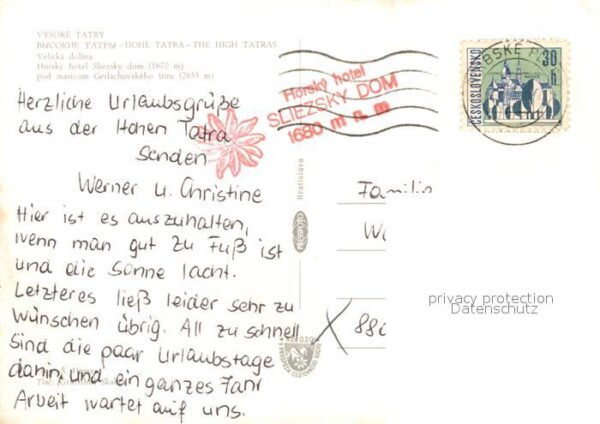 VYSOKÉ TATRY
ВЫСОКИЕ ТАТРЫ - HOHE TATRA - THE HIGH TATRAS
Velická dolina
Horský hotel Sliezsky dom (1670 m)
pod masívom Gerlachovského štítu (2655 m)
Herzliche Urlaubsgrüße
aus der Hohen Tatra
senden
Werner u. Christine
Hier ist es auszuhalten,
wenn man gut zu Fuß ist
und die Sonne lacht.
Letzteres ließ leider sehr zu
wünschen übrig. All zu schnell
sind die paar Urlaubstage
dahin, und ein ganzes Jahr
Arbeit wartet auf uns.
Horský hotel
SLIEZSKY DOM
1680 m n. m
ČESKOSLOVENSKO
30
h
BSKÉ P
Bratislava
PRESSFOTO
Familie
privacy protection
Datenschutz